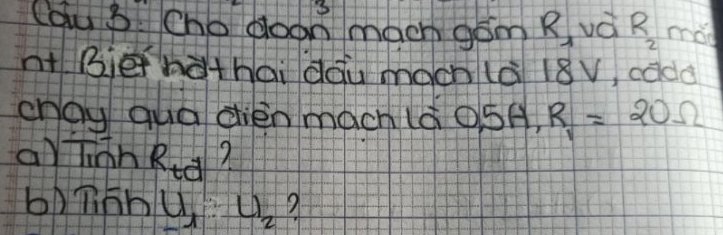 Câu 3: Cho đoạn mạch gồm R1 và R2 mắc
nt. Biết hđt hai đầu mạch là 18V, cđdđ
chạy qua điện mạch là 0,5A, R1 = 20Ω
a) Tính Rtđ?
b) Tính U1, U2?